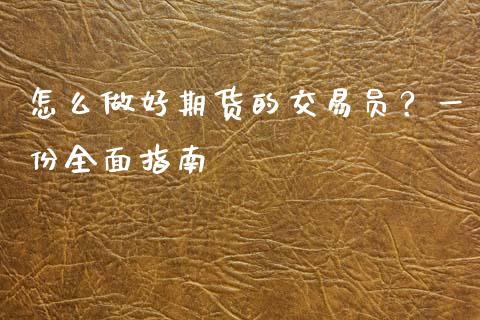 怎么做好期货的交易员？一
份全面指南